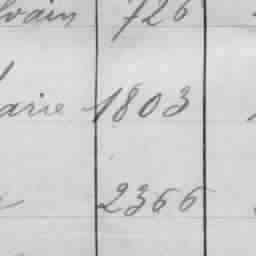 lvain 726
arie 1803
2366